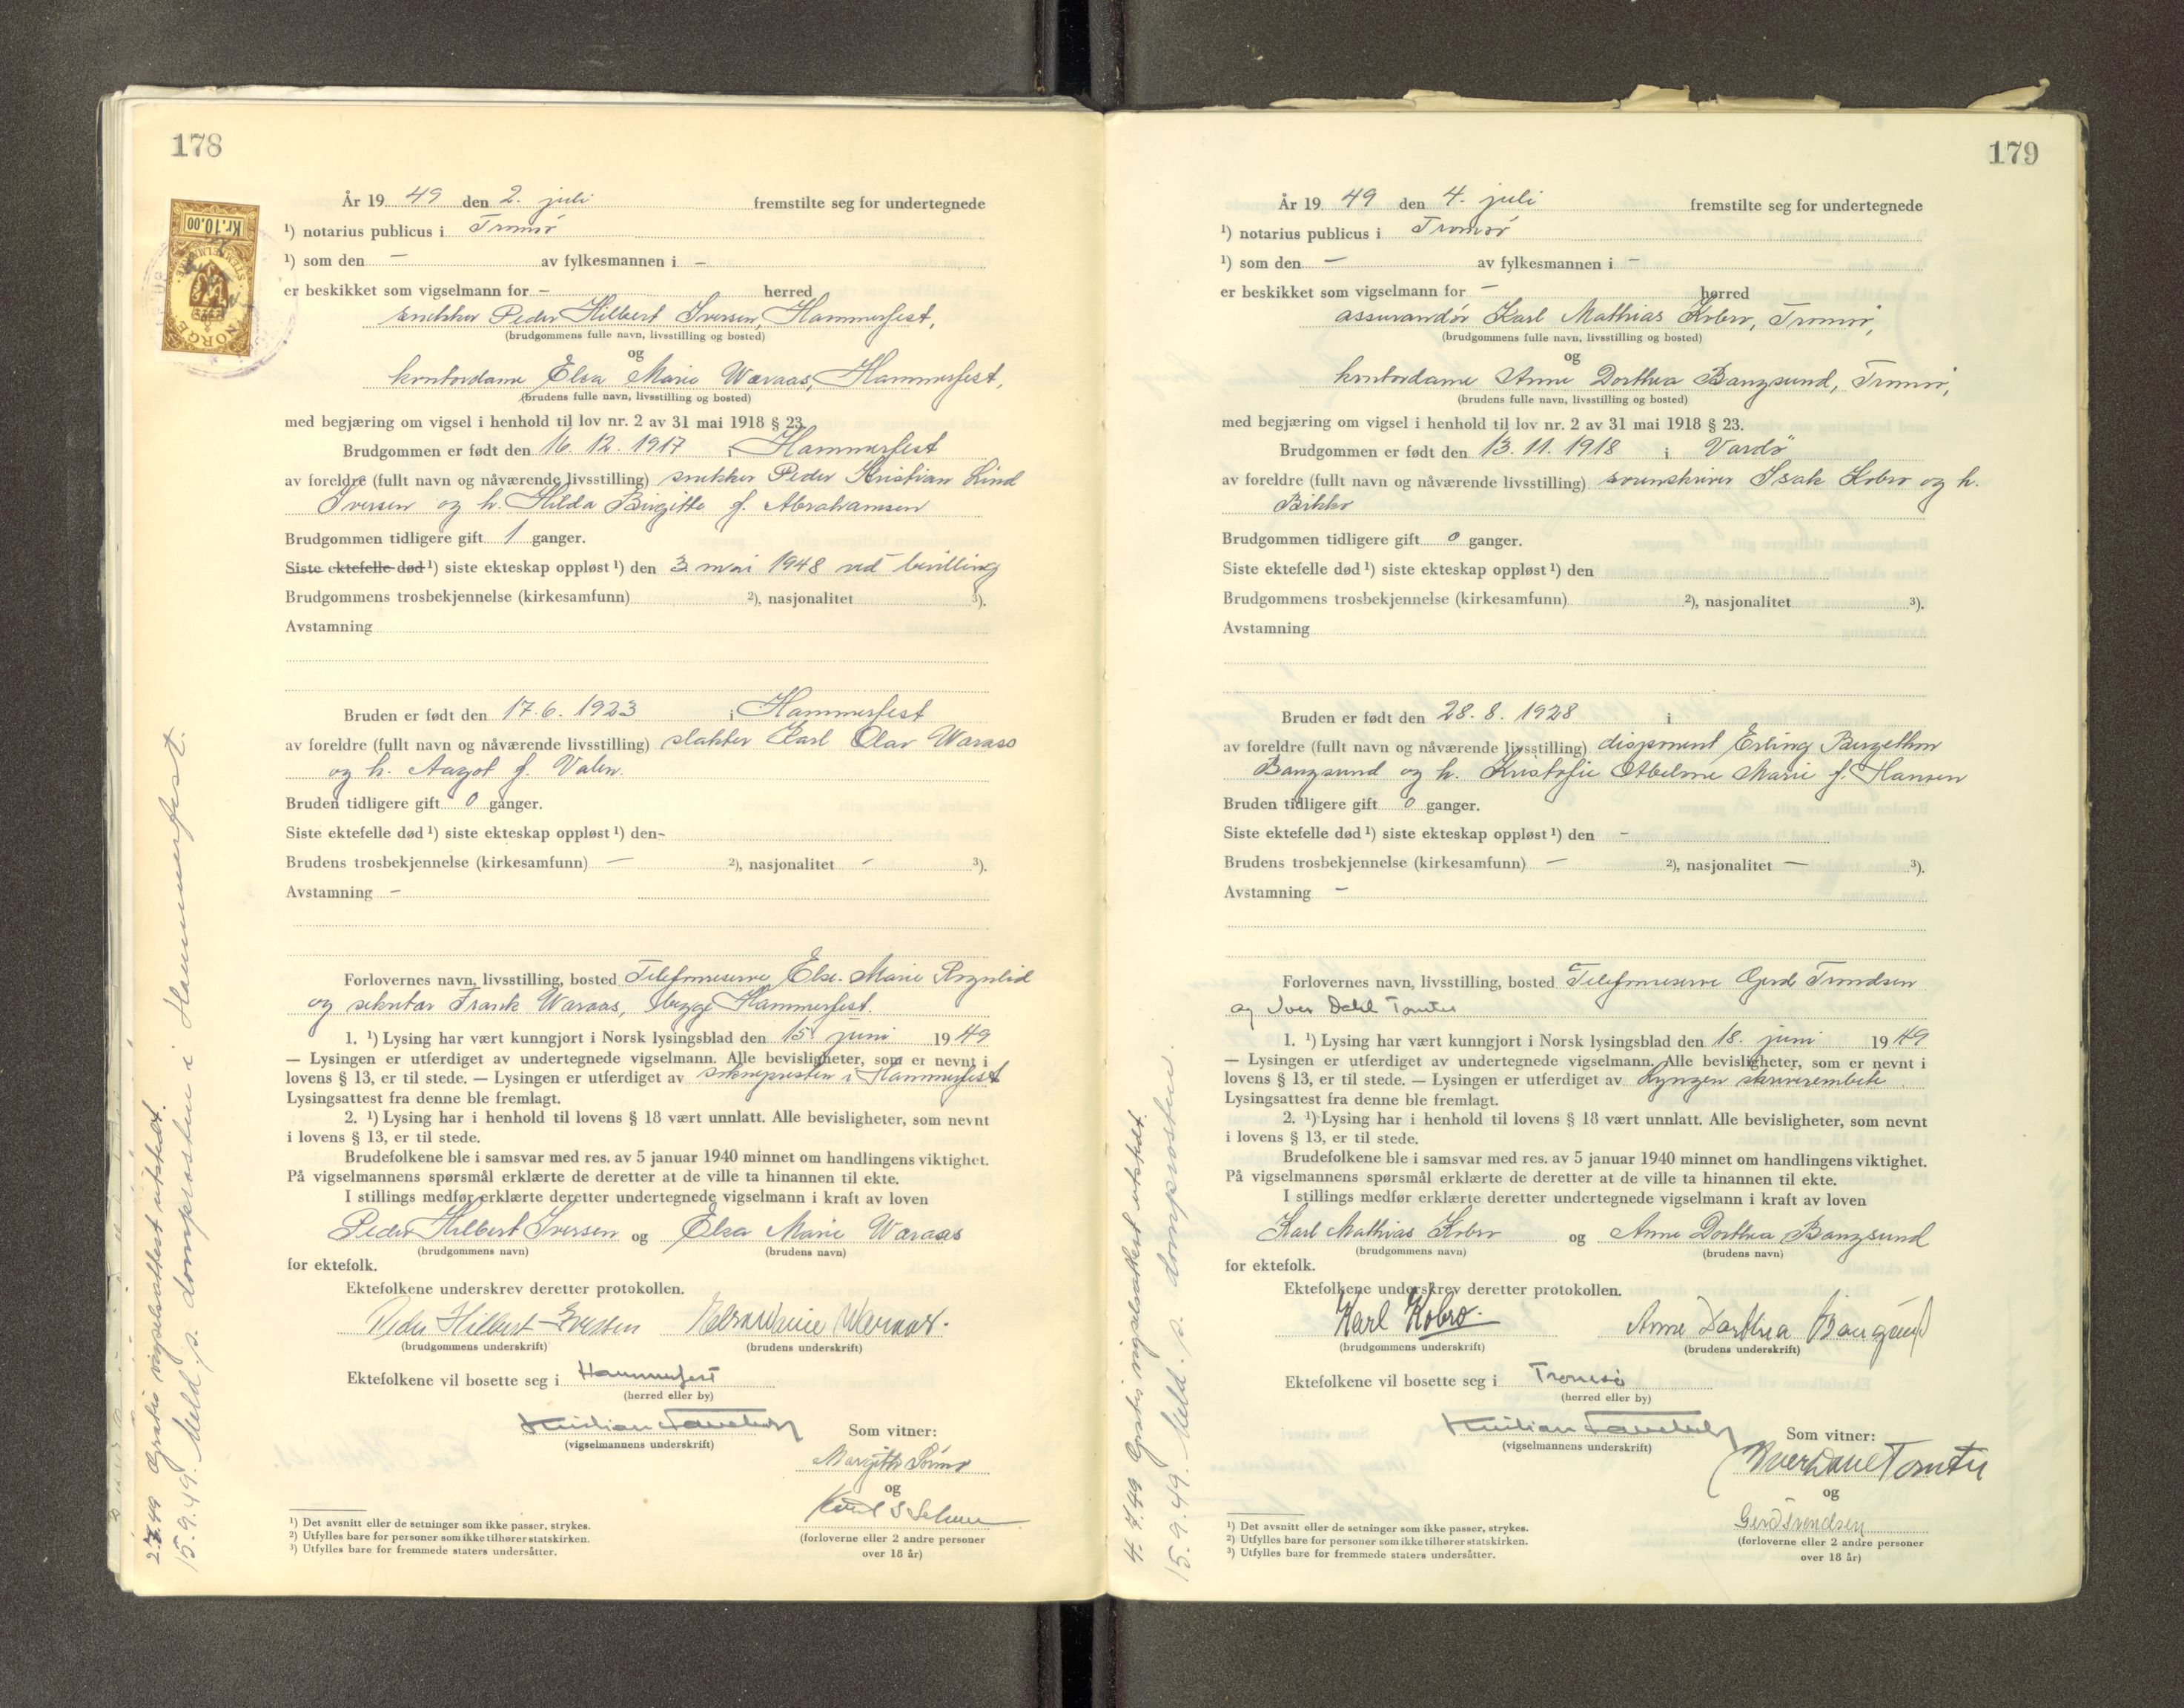 178
Kr. 10.00
STEMPELMERKE
NORGE
År 19 49 den 2. juli fremstilte seg for undertegnede
¹) notarius publicus i Tromsö
¹) som den – av fylkesmannen i –
er beskikket som vigselmann for – herred
snekker Peder Hilbert Iversen, Hammerfest,
(brudgommens fulle navn, livsstilling og bosted)
og
kontordame Elsa Marie Waraas, Hammerfest,
(brudens fulle navn, livsstilling og bosted)
med begjæring om vigsel i henhold til lov nr. 2 av 31 mai 1918 § 23.
Brudgommen er født den 16. 12. 1917 i Hammerfest
av foreldre (fullt navn og nåværende livsstilling) snekker Peder Kristian Lind
Iversen og h. Hilda Birgitte f. Abrahamsen
Brudgommen tidligere gift 1 ganger.
Siste ektefelle død ¹) siste ekteskap oppløst ¹) den 3. mai 1948 ved bevilling
Brudgommens trosbekjennelse (kirkesamfunn) ²), nasjonalitet ³).
Avstamning
Bruden er født den 17. 6. 1923 i Hammerfest
av foreldre (fullt navn og nåværende livsstilling) slakter Karl Olav Waraas
og h. Aagot f. Valen.
Bruden tidligere gift 0 ganger.
Siste ektefelle død ¹) siste ekteskap oppløst ¹) den –
Brudens trosbekjennelse (kirkesamfunn) – ²), nasjonalitet – ³).
Avstamning –
Forlovernes navn, livsstilling, bosted Telefonreserve Else-Marie Rognlid
og sekretær Frank Waraas, begge Hammerfest.
1. ¹) Lysing har vært kunngjort i Norsk lysingsblad den 15. juni 19 49
— Lysingen er utferdiget av undertegnede vigselmann. Alle bevisligheter, som er nevnt i
lovens § 13, er til stede. — Lysingen er utferdiget av soknepresten i Hammerfest
Lysingsattest fra denne ble fremlagt.
2. ¹) Lysing har i henhold til lovens § 18 vært unnlatt. Alle bevisligheter, som nevnt
i lovens § 13, er til stede.
Brudefolkene ble i samsvar med res. av 5 januar 1940 minnet om handlingens viktighet.
På vigselmannens spørsmål erklærte de deretter at de ville ta hinannen til ekte.
I stillings medfør erklærte deretter undertegnede vigselmann i kraft av loven
Peder Hilbert Iversen og Elsa Marie Waraas
(brudgommens navn) (brudens navn)
for ektefolk.
Ektefolkene underskrev deretter protokollen.
Peder Hilbert Iversen Elsa Marie Waraas.
(brudgommens underskrift) (brudens underskrift)
Ektefolkene vil bosette seg i Hammerfest
(herred eller by)
Kristian
(vigselmannens underskrift)
Som vitner:
Margith
og
Knut S
(forloverne eller 2 andre personer
over 18 år)
¹) Det avsnitt eller de setninger som ikke passer, strykes.
²) Utfylles bare for personer som ikke tilhører statskirken.
³) Utfylles bare for fremmede staters undersåtter.
2.7.49 Gratis vigselsattest utstedt.
15.9.49. Meld. s. domprosten i Hammerfest.
179
År 19 49 den 4. juli fremstilte seg for undertegnede
¹) notarius publicus i Tromsö
¹) som den – av fylkesmannen i –
er beskikket som vigselmann for – herred
assurandör Karl Mathias Kobro, Tromsö,
(brudgommens fulle navn, livsstilling og bosted)
og
kontordame Anne Dorthea Bangsund, Tromsö,
(brudens fulle navn, livsstilling og bosted)
med begjæring om vigsel i henhold til lov nr. 2 av 31 mai 1918 § 23.
Brudgommen er født den 13. 11. 1918 i Vardö
av foreldre (fullt navn og nåværende livsstilling) sorenskriver Isak Kobro og h.
Bikko
Brudgommen tidligere gift 0 ganger.
Siste ektefelle død ¹) siste ekteskap oppløst ¹) den
Brudgommens trosbekjennelse (kirkesamfunn) ²), nasjonalitet ³).
Avstamning
Bruden er født den 28. 8. 1928 i
av foreldre (fullt navn og nåværende livsstilling) disponent Erling Bergethon
Bangsund og h. Kristofie Abelone Marie f. Hansen
Bruden tidligere gift 0 ganger.
Siste ektefelle død ¹) siste ekteskap oppløst ¹) den –
Brudens trosbekjennelse (kirkesamfunn) – ²), nasjonalitet – ³).
Avstamning –
Forlovernes navn, livsstilling, bosted Telefonreserve Gerd Trondsen
og Iver Dahl Tomter
1. ¹) Lysing har vært kunngjort i Norsk lysingsblad den 18. juni 19 49
— Lysingen er utferdiget av undertegnede vigselmann. Alle bevisligheter, som er nevnt i
lovens § 13, er til stede. — Lysingen er utferdiget av Lyngen skriverembete
Lysingsattest fra denne ble fremlagt.
2. ¹) Lysing har i henhold til lovens § 18 vært unnlatt. Alle bevisligheter, som nevnt
i lovens § 13, er til stede.
Brudefolkene ble i samsvar med res. av 5 januar 1940 minnet om handlingens viktighet.
På vigselmannens spørsmål erklærte de deretter at de ville ta hinannen til ekte.
I stillings medfør erklærte deretter undertegnede vigselmann i kraft av loven
Karl Mathias Kobro og Anne Dorthea Bangsund
(brudgommens navn) (brudens navn)
for ektefolk.
Ektefolkene underskrev deretter protokollen.
Karl Kobro. Anne Dorthea Bangsund
(brudgommens underskrift) (brudens underskrift)
Ektefolkene vil bosette seg i Tromsö
(herred eller by)
Kristian
(vigselmannens underskrift)
Som vitner:
Iver Dahl Tomter
og
Gerd Trondsen
(forloverne eller 2 andre personer
over 18 år)
¹) Det avsnitt eller de setninger som ikke passer, strykes.
²) Utfylles bare for personer som ikke tilhører statskirken.
³) Utfylles bare for fremmede staters undersåtter.
4.7.49 Gratis vigselsattest utstedt.
15.9.49. Meld. s. domprosten.